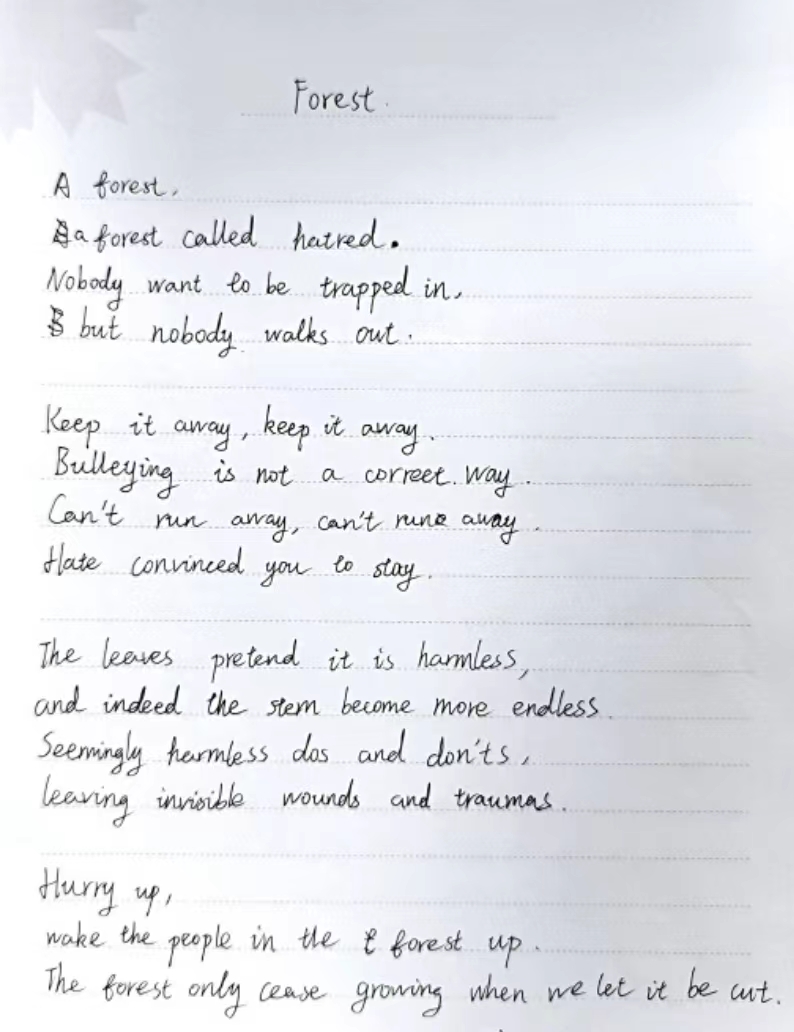 Forest.
A forest,
a forest called hatred.
Nobody want to be trapped in,
but nobody walks out.
Keep it away, keep it away.
Bulleying is not a correct way.
Can't run away, can't run away.
Hate convinced you to stay.
The leaves pretend it is harmless,
and indeed the stem become more endless.
Seemingly harmless dos and don'ts,
leaving invisible wounds and traumas.
Hurry up,
wake the people in the forest up.
The forest only cease growing when we let it be cut.